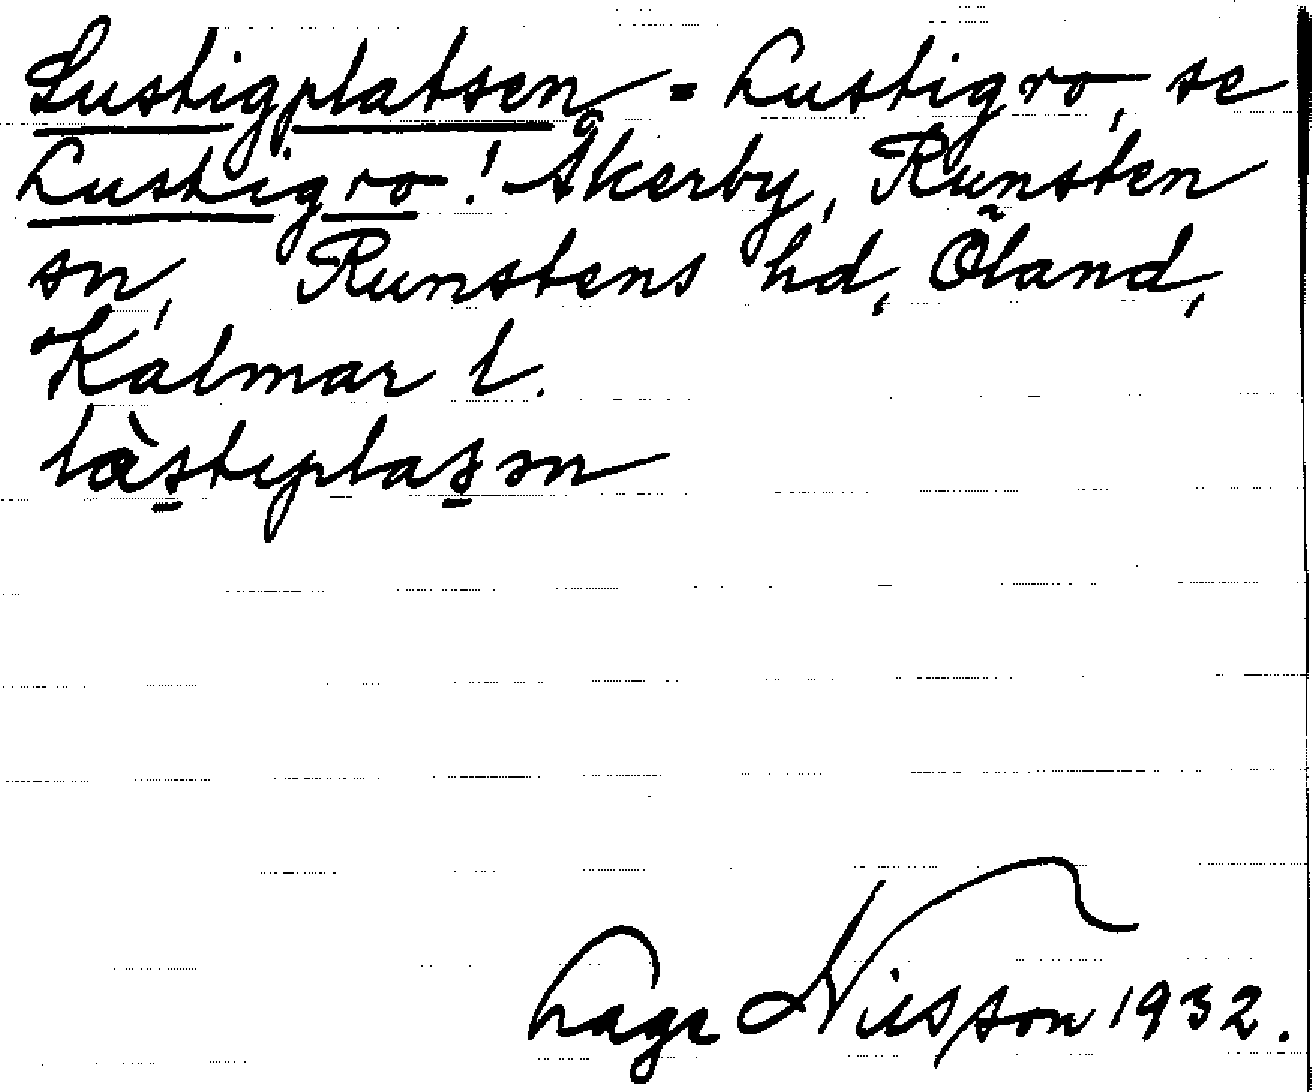 Lustigplatsen = Lustigro, se
Lustigro! Åkerby, Runsten
sn, Runstens hd, Öland,
Kalmar l.
Lage Nilsson 1932.